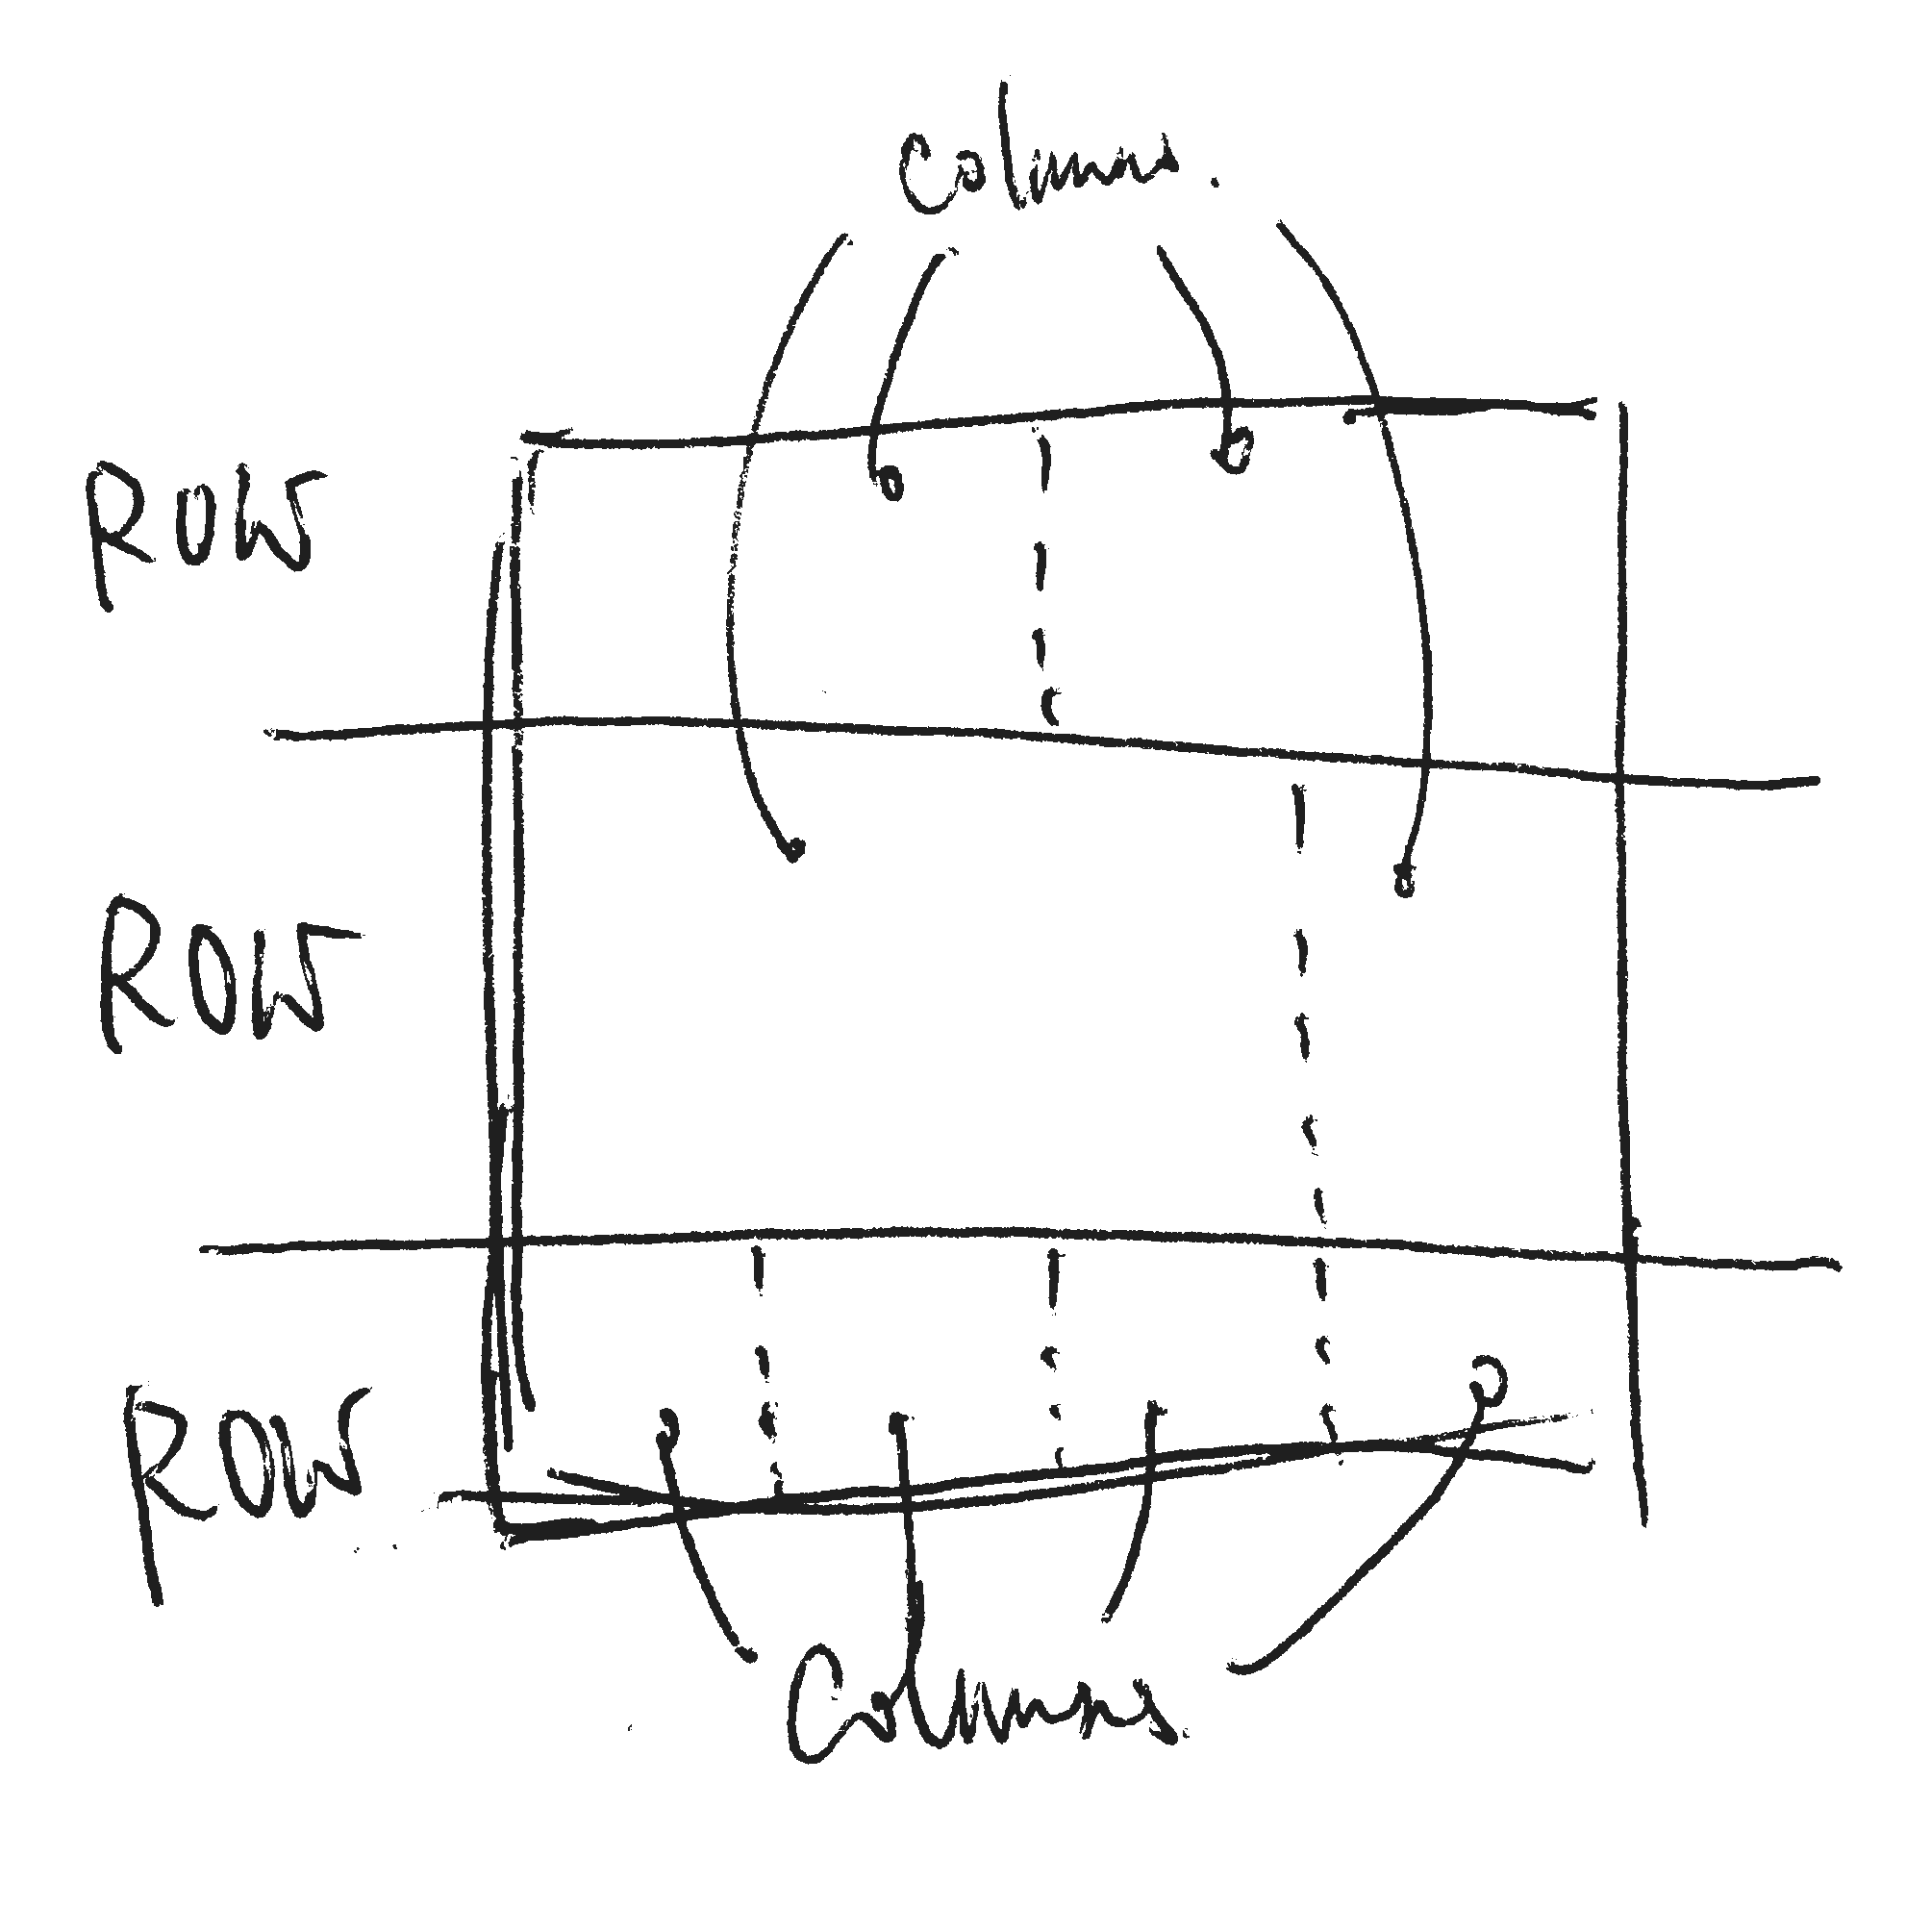 Columns.
ROW
ROW
ROW
Columns